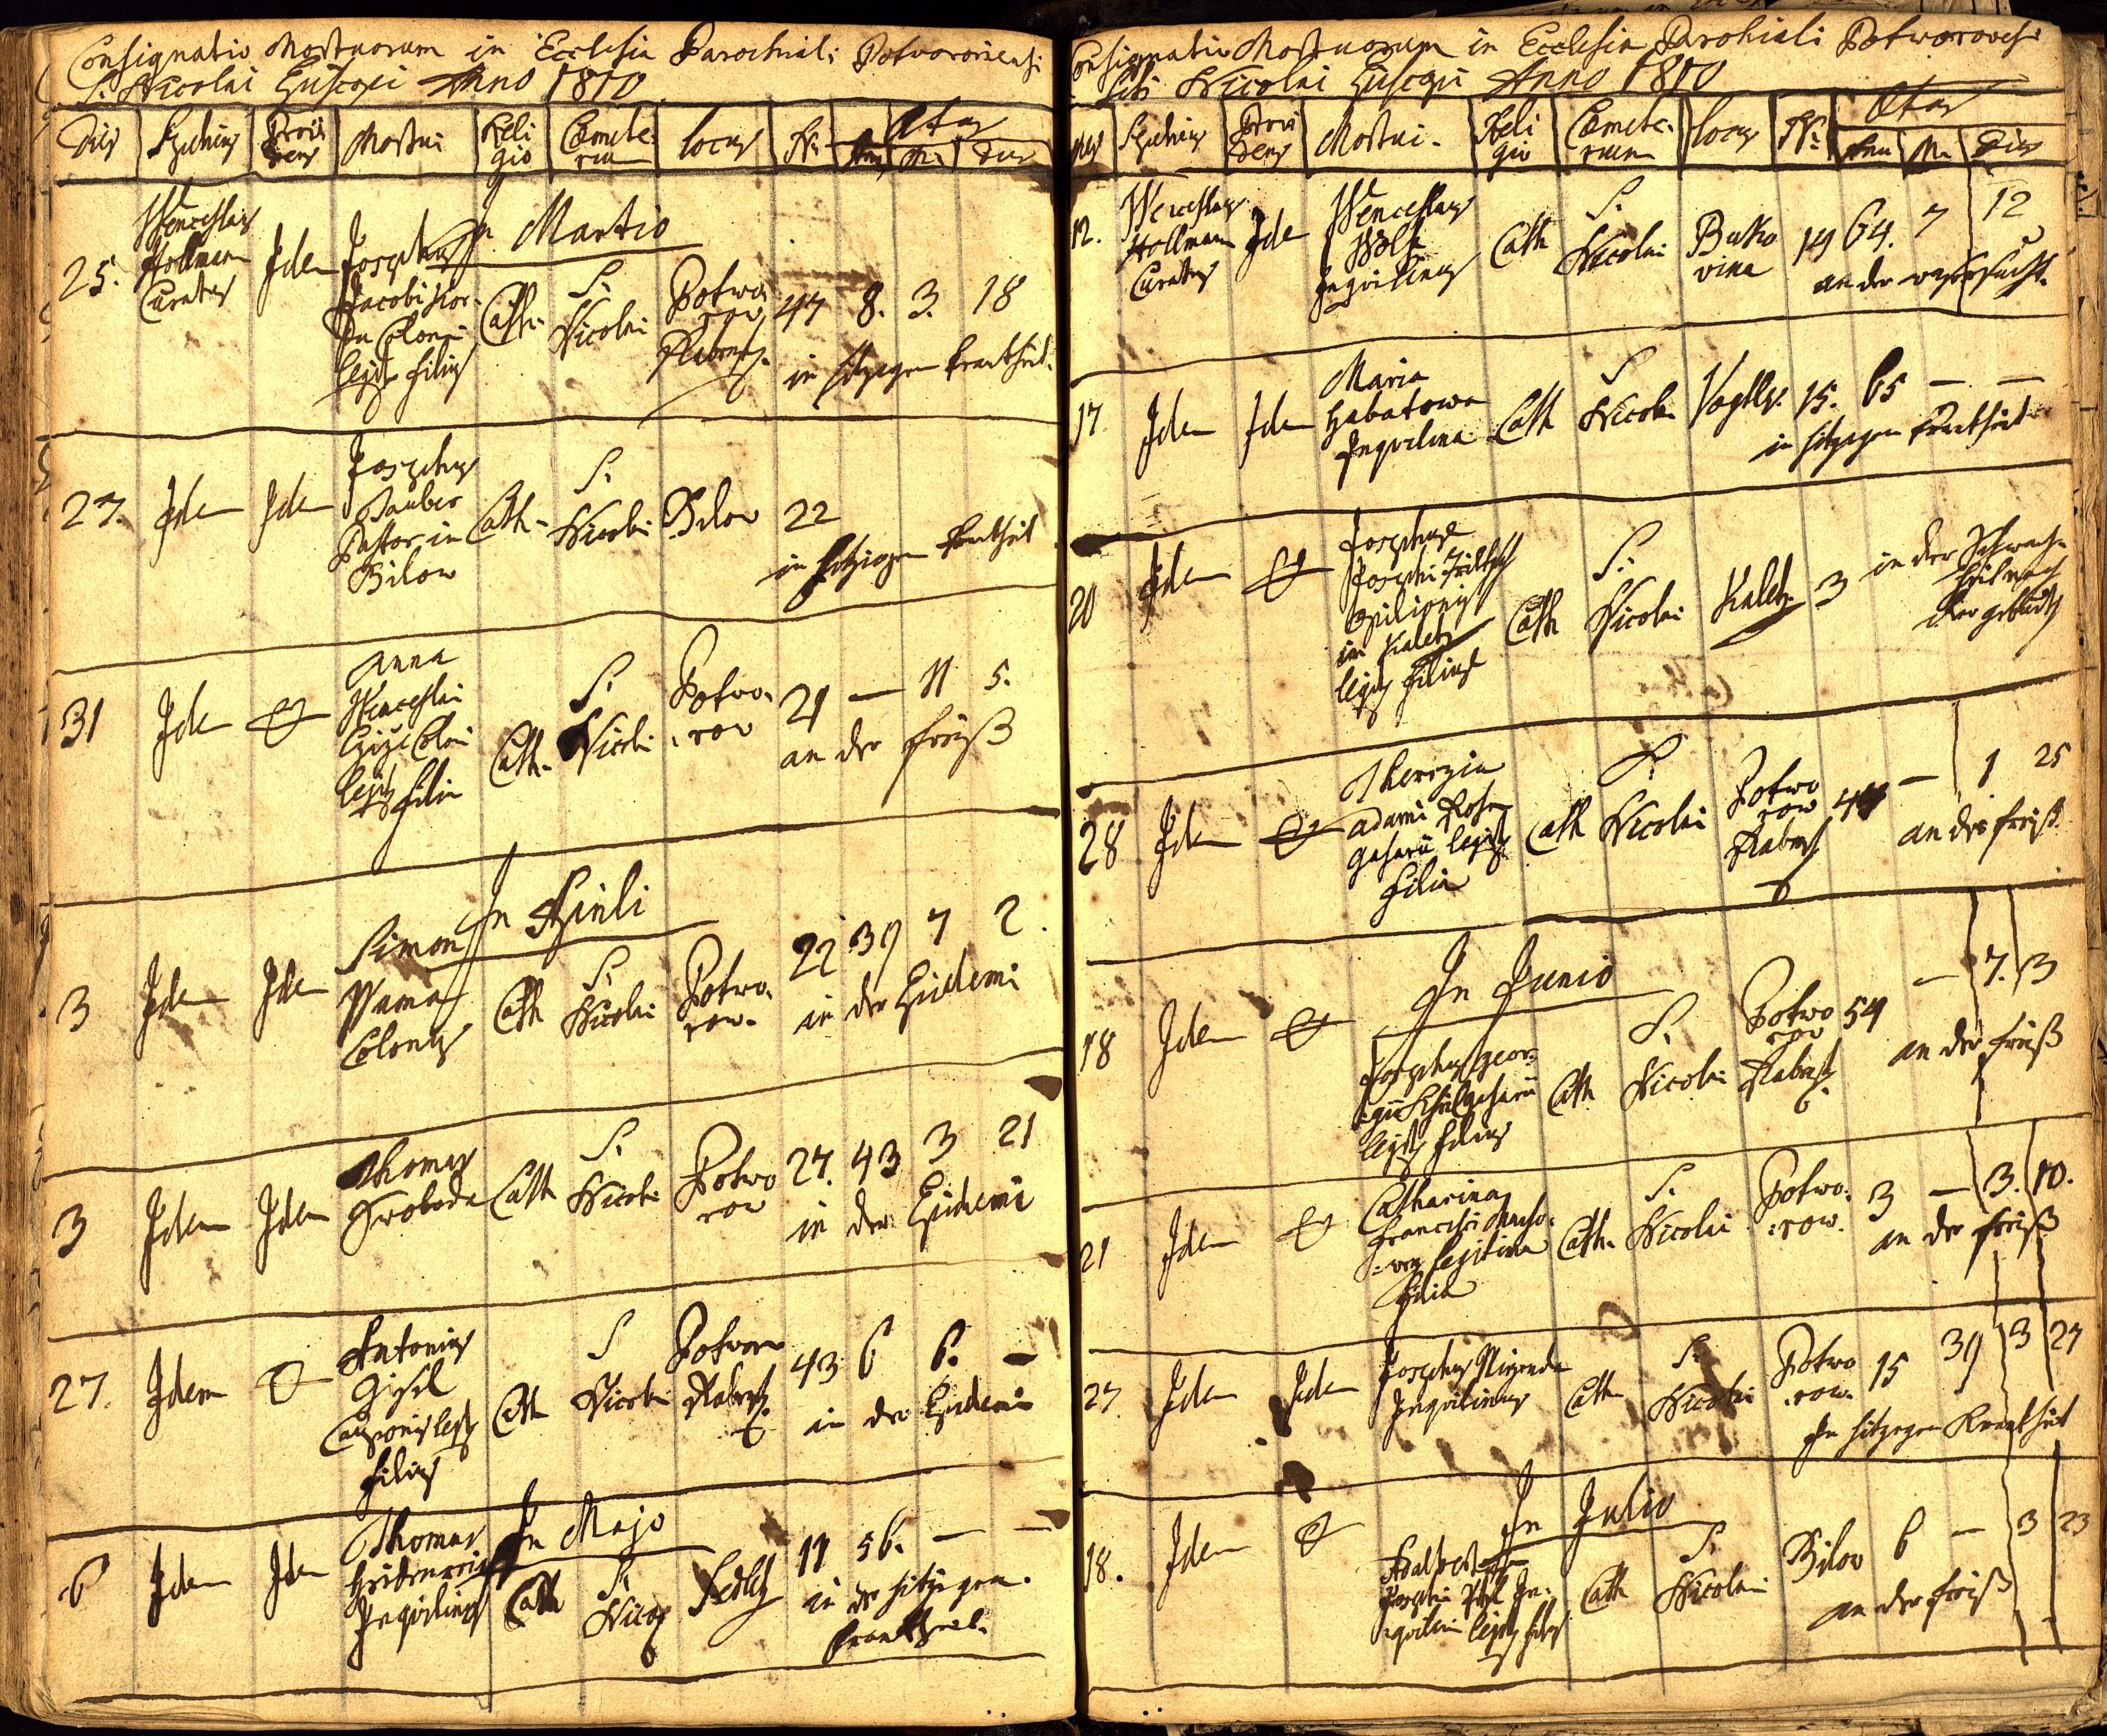 Consignatio Mortuorum in Ecclesia Parochiali Potvoroviensi
S. Nicolai Episcopi Anno 1810
Dies Sepeliens Provi dens Mortui Reli gio Cœmete- rium locus Nr. Ætas
Ann M. Dies
In Martio
25. Wenceslaus Hollmann Curatus Idem Josephus
Jacobi
Coloni
legit. filius
Cath. S. Nicolai Potwo- row Rabenst. 47 8. 3. 18
in hitzigen Krankheit.
27. Idem Idem Josephus
Tauber
Pastor in
Bilow
Cath. S. Nicolai Bilow 22
in hitzigen Krankheit
31 Idem & Anna
Wenceslai
Coloni
legit. filia
Cath. S. Nicolai Potwo- row 21 — 11 5.
an der Friß
In Aprili
3 Idem Idem Simon
Wama
Colonus
Cath S. Nicolai Potwo- row. 22 39 7 2.
in der Epidemi
3 Idem Idem Thomas
Swoboda
Cath S. Nicolai Potwo row 27. 43 3 21
in der Epidemi
27. Idem & Antonius
Gisel
legit.
filius
Cath S. Nicolai Potworow Rabenst. 43 6 6. —
in der Epidemi
In Majo
6 Idem Idem Thomas
Inquilinus
Cath S. Nicol. Sedletz 11 56. — —
in der hitzigen
Krankheit.
Consignatio Mortuorum in Ecclesia Parohiali Potworovesi
Sti Nicolai Episcopi Anno 1810
Dies Sepeliens Provi dens Mortui. Reli gio Cœmete- rium locus Nr. Ætas
Ann M. Dies
12. Wenceslaus Hollmann Curatus Idem Wenceslaus
Wolf
Inquilinus
Cath S. Nicolai Buko vina 14 64. 7 12
an der Wassersucht.
17 Idem Idem Maria
Habatowa
Inquilina
Cath S Nicolai 15. 65 — —
in hitzigen Krankheit
20 Idem & Josephus
Josephi
Opilionis
in Kaletz
legit. filius
Cath S. Nicolai Kaletz 3 in der Schwach-
heit nach
der geburt
28 Idem & Therezia
Adami
legit.
filia
Cath S. Nicolai Potwo row Rabenst. — 1 25
an der friß
In Junio
18 Idem & Josephus Geor-
gii
legit. filius
Cath S. Nicolai Potwo row Rabenst. 54 — 7. 13
an der Friß
21 Idem & Catharina
Francisci
legitima
filia
Cath. S. Nicolai Potwo- row. 3 — 3. 10.
an der Friß
27 Idem Idem Josephus
Inquilinus
Cath S. Nicolai Potwo row. 15 39 3 27
In hitzigen Krankheit
In Julio
18. Idem & Adalbertus
Josephi In-
quilini legit. filius
Cath S. Nicolai Bilow 6 — 3 23
an der friß